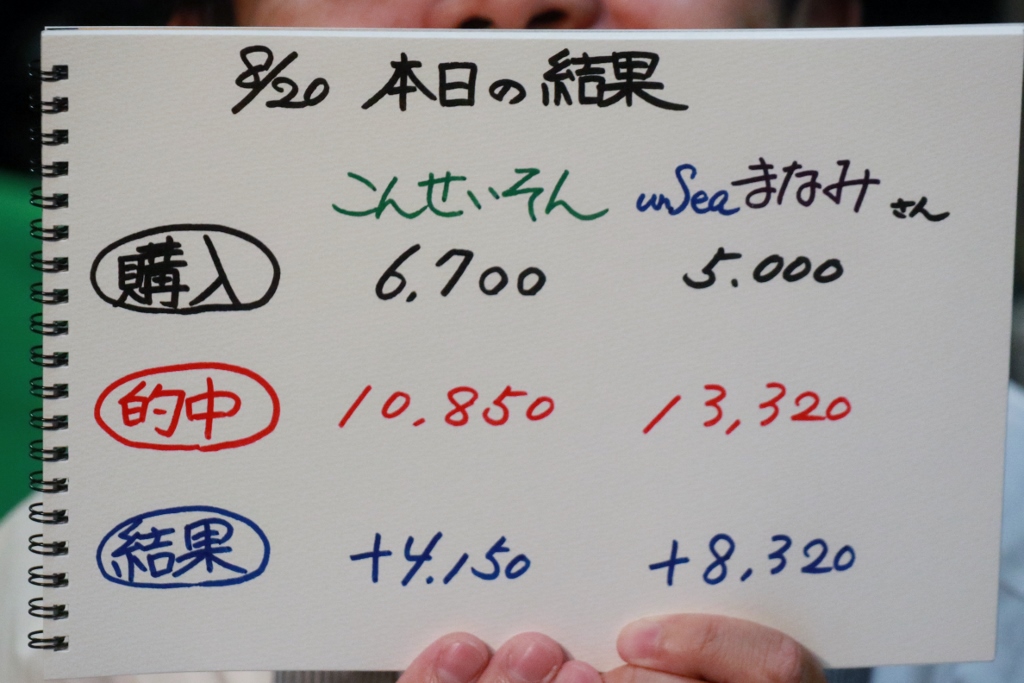 8/20 本日の結果
こんせいそん unSeaまなみさん
購入 6.700 5.000
的中 10.850 13,320
結果 +4.150 +8,320